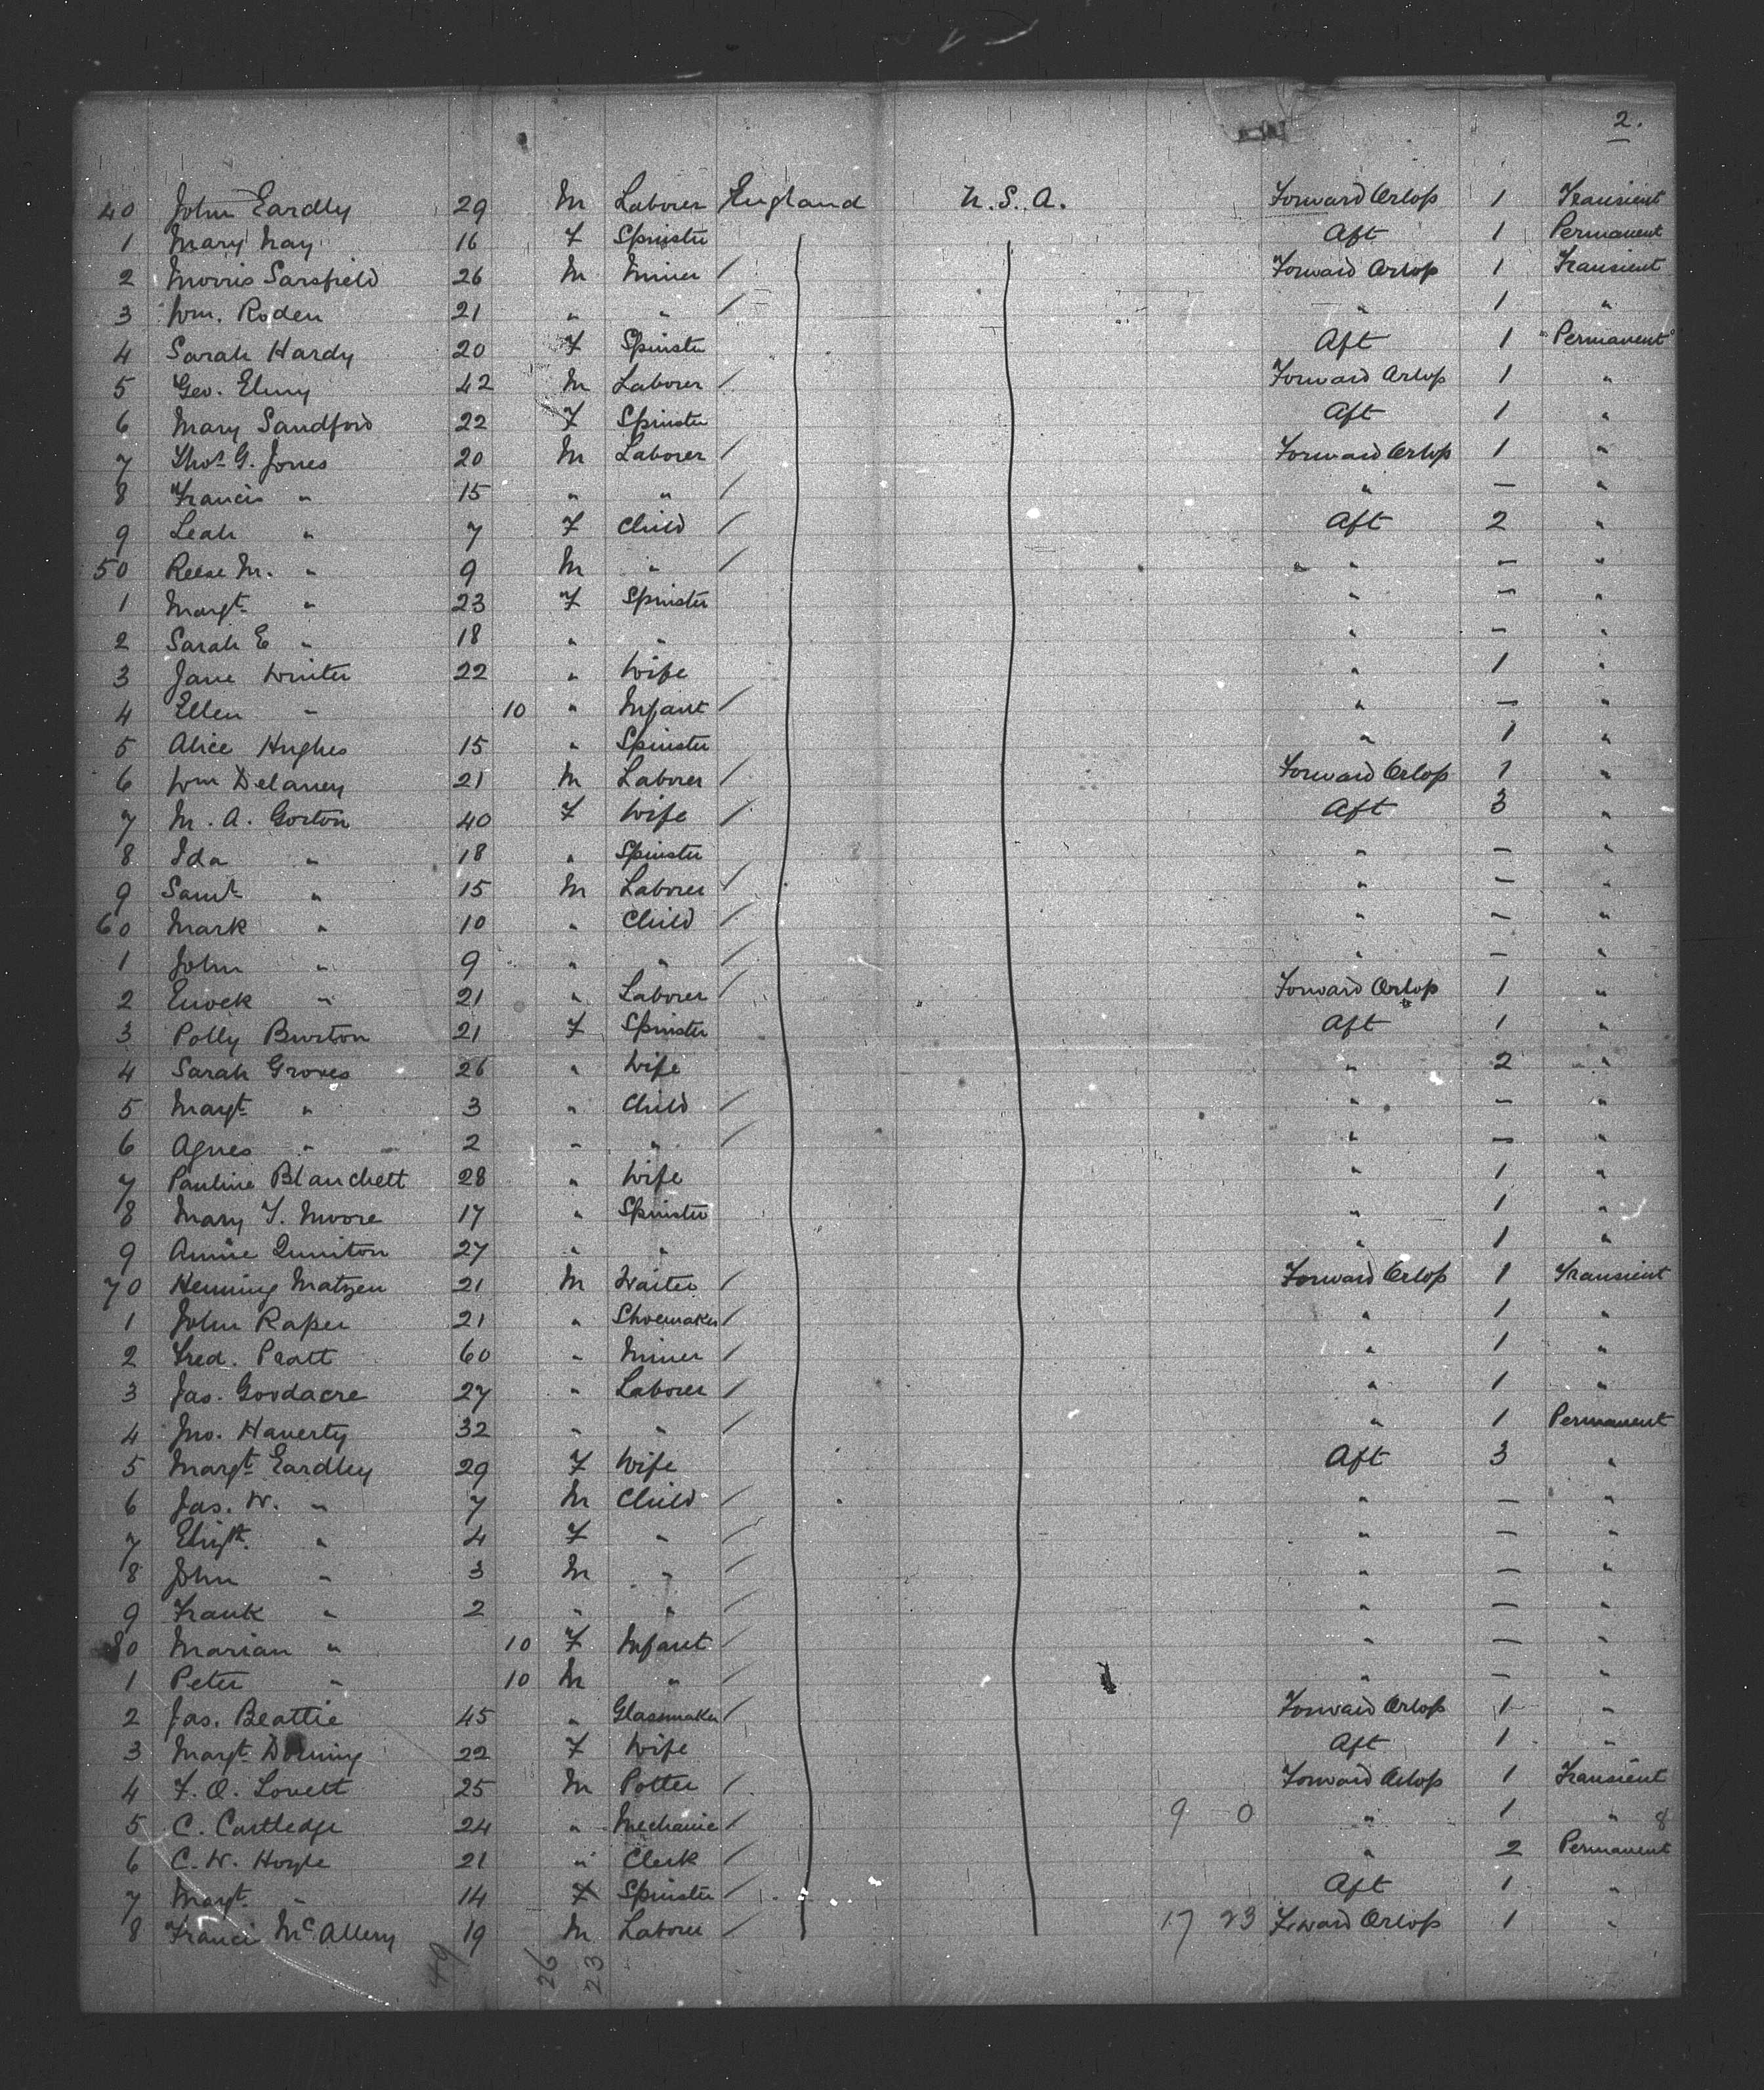 2.
40 John Eardley 29 M Laborer England U.S.A. Forward Orlop 1 Transient
1 Mary Nay 16 F Spinster Aft 1 Permanent
2 Morris Sarsfield 26 M Miner / Forward Orlop 1 Transient
3 Wm. Roden 21 " " / " 1 "
4 Sarah Hardy 20 F Spinster Aft 1 "Permanent"
5 Geo. Elmy 42 M Laborer / Forward Orlop 1 "
6 Mary Sandford 22 F Spinster Aft 1 "
7 Thos G. Jones 20 M Laborer / Forward Orlop 1 "
8 Francis " 15 " " / " — "
9 Leah " 7 F Child / Aft 2 "
50 Reese M. " 9 M " / " — "
1 Margt " 23 F Spinster " — "
2 Sarah E " 18 " " " — "
3 Jane Winter 22 " Wife " 1 "
4 Ellen " 10 " Infant / " — "
5 Alice Hughes 15 " Spinster " 1 "
6 Wm Delaney 21 M Laborer / Forward Orlop 1 "
7 M. A. Gorton 40 F Wife / Aft 3 "
8 Ida " 18 " Spinster " — "
9 Saml " 15 M Laborer / " — "
60 Mark " 10 " Child / " — "
1 John " 9 " " / " — "
2 Enock " 21 " Laborer / Forward Orlop 1 "
3 Polly Burton 21 F Spinster Aft 1 "
4 Sarah Groves 26 " Wife " 2 "
5 Margt " 3 " Child / " — "
6 Agnes " 2 " " / " — "
7 Pauline Blanchett 28 " Wife " 1 "
8 Mary T. Moore 17 " Spinster " 1 "
9 Annie Quniton 27 " " " 1 "
70 Henning Matzen 21 M Waiter / Forward Orlop 1 Transient
1 John Raper 21 " Shoemaker / " 1 "
2 Fred. Pratt 60 " Miner / " 1 "
3 Jas. Goodacre 27 " Laborer / " 1 "
4 Jno. Haverty 32 " " / " 1 Permanent
5 Margt Eardley 29 F Wife Aft 3 "
6 Jas. W. " 7 M Child / " — "
7 Elizth. " 4 F " / " — "
8 John " 3 M " / " — "
9 Frank " 2 " " / " — "
80 Marian " 10 F Infant / " — "
1 Peter " 10 M " / " — "
2 Jas. Beattie 45 " Glassmaker / Forward Orlop 1 "
3 Margt 22 F Wife Aft 1 "
4 F. O. Lovett 25 M Potter / Forward Orlop 1 Transient
5 C. Cartledge 24 " Mechanic / 9 0 " 1 " 8
6 C. W. Hoyle 21 " Clerk / " 2 Permanent
7 Margt. " 14 F Spinster / Aft 1 "
8 Francis McAllery 19 M Laborer / 17 23 Forward Orlop 1 "
49 26 23